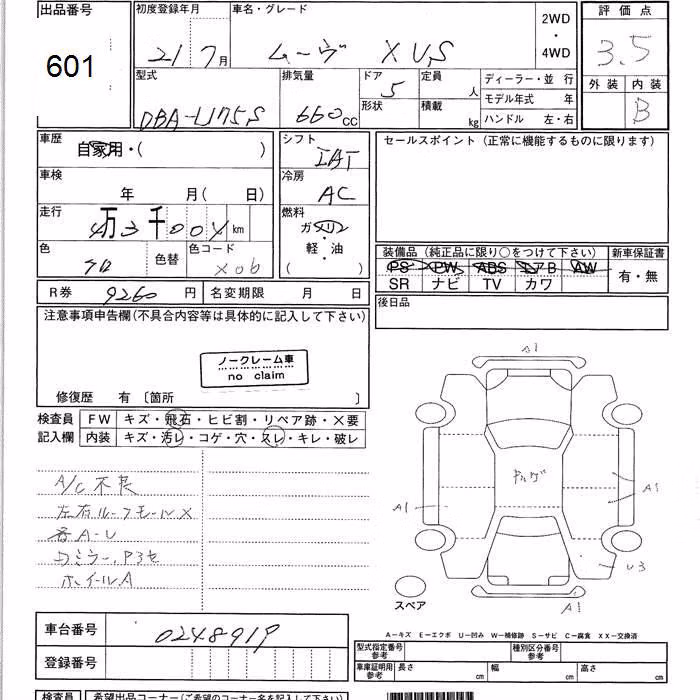 出品番号
601
初度登録年月
21 7月
車名・グレード
ムーヴ X VS
2WD
・
4WD
評価点
3.5
型式
DBA-L175S
排気量
660cc
ドア
5
形状
定員
人
積載
kg
ディーラー・並 行
モデル年式 年
ハンドル 左・右
外装 内装
B
車歴
自家用・( )
シフト
IAT
セールスポイント (正常に機能するものに限ります)
車検
年 月( 日)
冷房
AC
走行
4万3千00 km
燃料
ガソリン
・
軽・油
( )
色
クロ
色替
色コード
X06
装備品 (純正品に限り○をつけて下さい)
PS PW ABS エアB AW
SR ナビ TV カワ
新車保証書
有・無
R券 9260 円
名変期限 月 日
後日品
注意事項申告欄(不具合内容等は具体的に記入して下さい)
ノークレーム車
no claim
修復歴 有 〔箇所 〕
検査員
記入欄
FW キズ・飛石・ヒビ割・リペア跡・×要
内装 キズ・汚レ・コゲ・穴・スレ・キレ・破レ
A/C不良
左右ルーフモール×
各A-U
ホイールA
A1
A1
A1
U3
A1
スペア
A-キズ E-エクボ U-凹み W-補修跡 S-サビ C-腐食 XX-交換済
車台番号
0248919
登録番号
型式指定番号
参考
種別区分番号
参考
車庫証明用
参考
長さ cm
幅 cm
高さ cm
検査員
希望出品コーナー(ご希望のコーナー名を記入下さい)